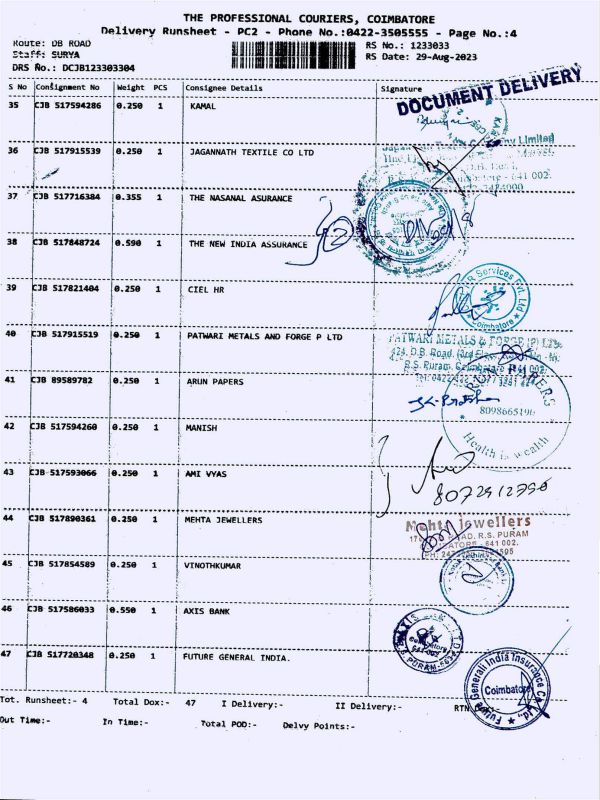 THE PROFESSIONAL COURIERS, COIMBATORE
Delivery Runsheet - PC2 - Phone No.:0422-3505555 - Page No.:4
Route: DB ROAD
Staff: SURYA
DRS No.: DCJB123303304
RS No.: 1233033
RS Date: 29-Aug-2023
S No Consignment No Weight PCS Consignee Details Signature
DOCUMENT DELIVERY
35 CJB 517594286 0.250 1 KAMAL
36 CJB 517915539 0.250 1 JAGANNATH TEXTILE CO LTD
Limited
37 CJB 517716384 0.355 1 THE NASANAL ASURANCE
38 CJB 517848724 0.590 1 THE NEW INDIA ASSURANCE
39 CJB 517821404 0.250 1 CIEL HR
R Services Pvt. Ltd
Coimbatore
40 CJB 517915519 0.250 1 PATWARI METALS AND FORGE P LTD
PATWARI METALS & FORGE (P) LTD.
424, D.B. Road,
R.S. Puram, Coimbatore 641 002.
41 CJB 89589782 0.250 1 ARUN PAPERS
PAPERS
8098665196
Health is wealth
42 CJB 517594260 0.250 1 MANISH
43 CJB 517593066 0.250 1 AMI VYAS
8072912796
44 CJB 517890361 0.250 1 MEHTA JEWELLERS
Mehta Jewellers
ROAD, R.S. PURAM
COIMBATORE - 641 002.
45 CJB 517854589 0.250 1 VINOTHKUMAR
46 CJB 517586033 0.550 1 AXIS BANK
AXIS
Coimbatore
47 CJB 517720348 0.250 1 FUTURE GENERAL INDIA.
Future Generali India Insurance Co. Ltd.,
Coimbatore
Tot. Runsheet:- 4 Total Dox:- 47 I Delivery:- II Delivery:- RTN
Out Time:- In Time:- Total POD:- Delvy Points:-